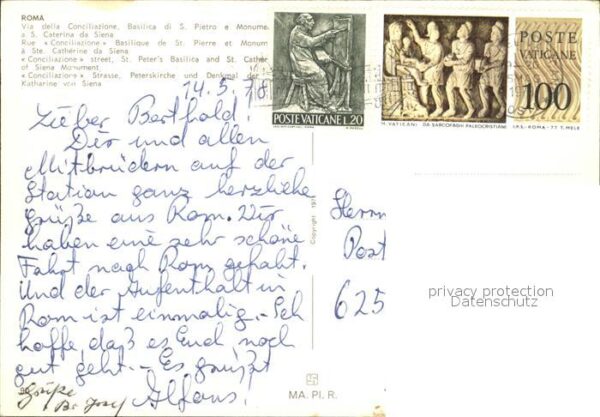 ROMA
Via della Conciliazione, Basilica di S. Pietro e Monume
a S. Caterina da Siena
Rue «Conciliazione» Basilique de St. Pierre et Monum
à Ste. Cathérine da Siena
«Conciliazione» street, St. Peter's Basilica and St. Cather
of Siena Monument
«Conciliazione» Strasse, Peterskirche und Denkmal der
Katharine von Siena
POSTE VATICANE L.20
M. VATICANI DA SARCOFAGHI PALEOCRISTIANI
POSTE
VATICANE
100
I.P.S.-ROMA-77 T. MELE
14.5.78
Lieber Berthold!
Dir und allen
Mitbrüdern auf der
Station ganz herzliche
Grüße aus Rom. Wir
haben eine sehr schöne
Fahrt nach Rom gehabt.
Und der Aufenthalt in
Rom ist einmalig. Ich
hoffe, daß es Euch noch
gut geht. Es grüßt
Alfons!
Grüße
Br. Josef
Copyright
Herrn
Post
625
privacy protection
Datenschutz
MA. PI. R.